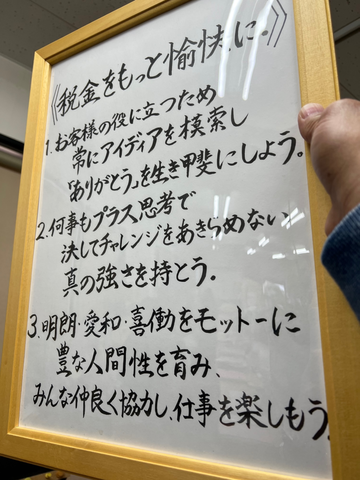 《税金をもっと愉快に。》
1. お客様の役に立つため
常にアイディアを模索し
「ありがとう」を生き甲斐にしよう。
2. 何事もプラス思考で
決してチャレンジをあきらめない
真の強さを持とう。
3. 明朗・愛和・喜働をモットーに
豊な人間性を育み、
みんな仲良く協力し、仕事を楽しもう